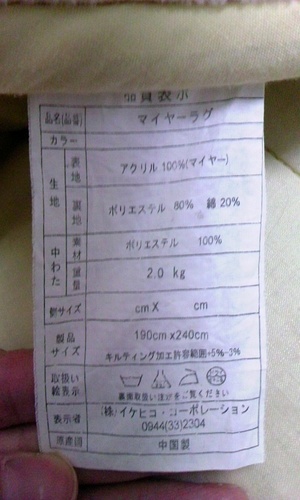 品質表示
品名(品番) マイヤーラグ
カラー
生地 表地 アクリル 100%(マイヤー)
裏地 ポリエステル 80% 綿 20%
中わた 素材 ポリエステル 100%
重量 2.0 kg
側サイズ cm X cm
製品サイズ 190cm x240cm
キルティング加工許容範囲+5%-3%
取扱い絵表示
裏面取扱い注意をご覧ください
表示者 (株)イケヒコ・コーポレーション
0944(33)2304
原産国 中国製